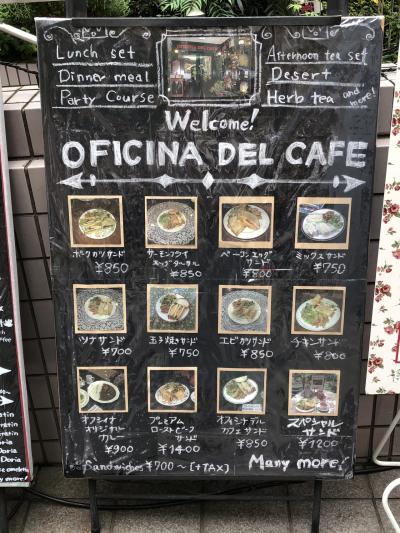 Lunch set
Dinner meal
Party Course
OFICINA DEL CAFE
Afternoon tea set
Desert
Herb tea and more!
Welcome!
OFICINA DEL CAFE
ポークカツサンド
¥850
サーモンフライ
エッグタルタル
¥850
ベーコンエッグ
サンド
¥800
ミックスサンド
¥750
ツナサンド
¥700
玉子焼きサンド
¥750
エビカツサンド
¥850
チキンサンド
¥800
オフィシナ
オリジナル
カレー
¥900
プレミアム
ローストビーフ
サンド
¥1400
カフェサンド
¥850
スペシャル
サンド
¥1200
Sandwiches ¥700~ [+TAX]
Many more!